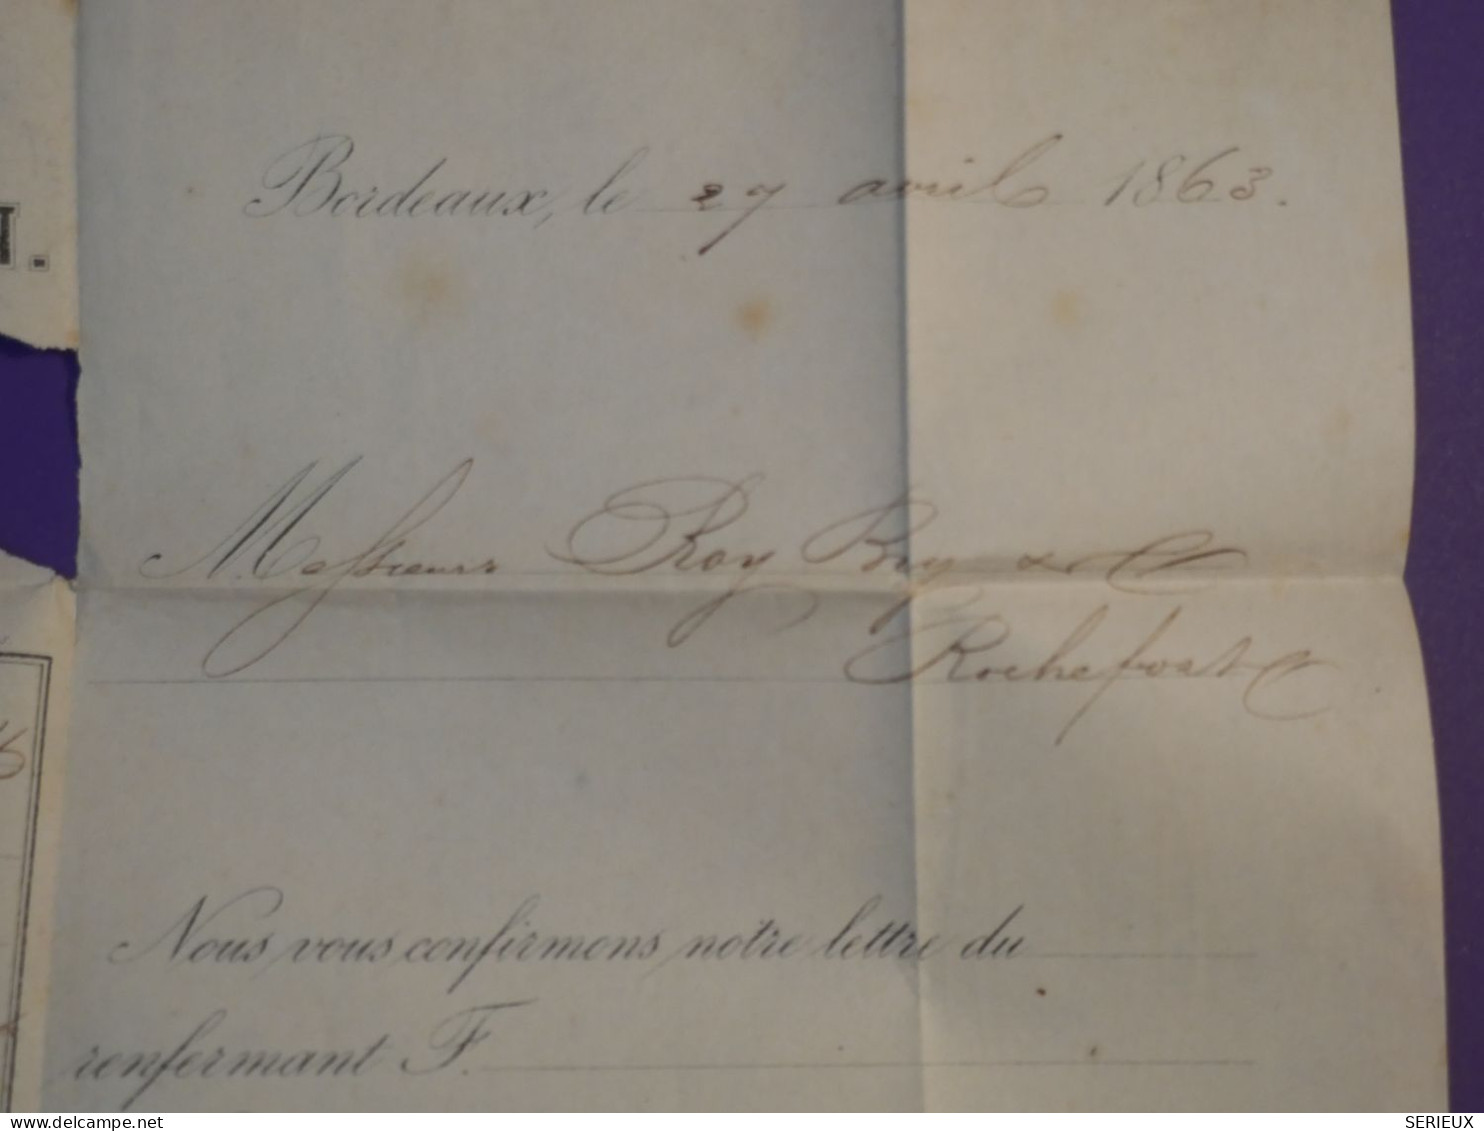 Bordeaux, le 27 avril 1863.
Messieurs Roy Bry & C
Rochefort
Nous vous confirmons notre lettre du
renfermant F.
SERIEUX